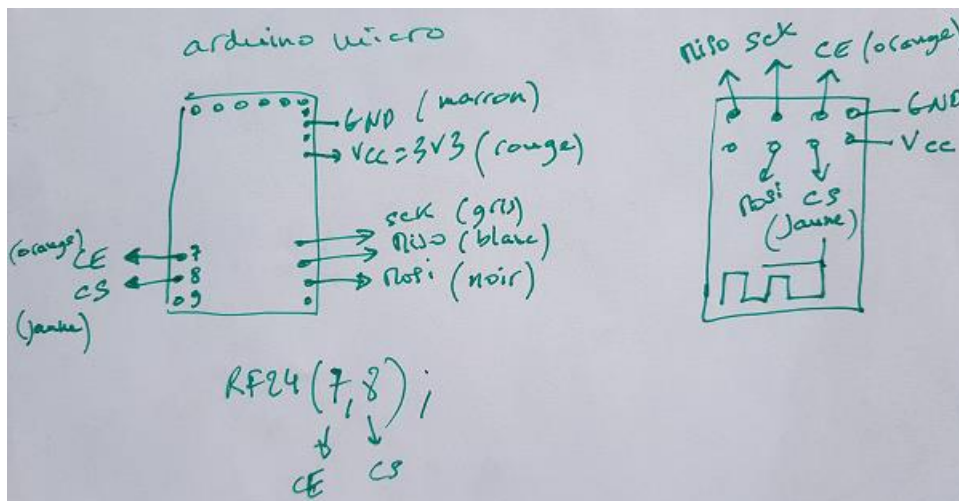 arduino micro
GND (marron)
Vcc = 3V3 (rouge)
sck (gris)
Miso (blanc)
Mosi (noir)
(orange) CE 7
CS 8
(jaune)
9
RF24 (7,8);
CE CS
Miso SCK CE (orange)
GND
Vcc
Mosi CS
(jaune)